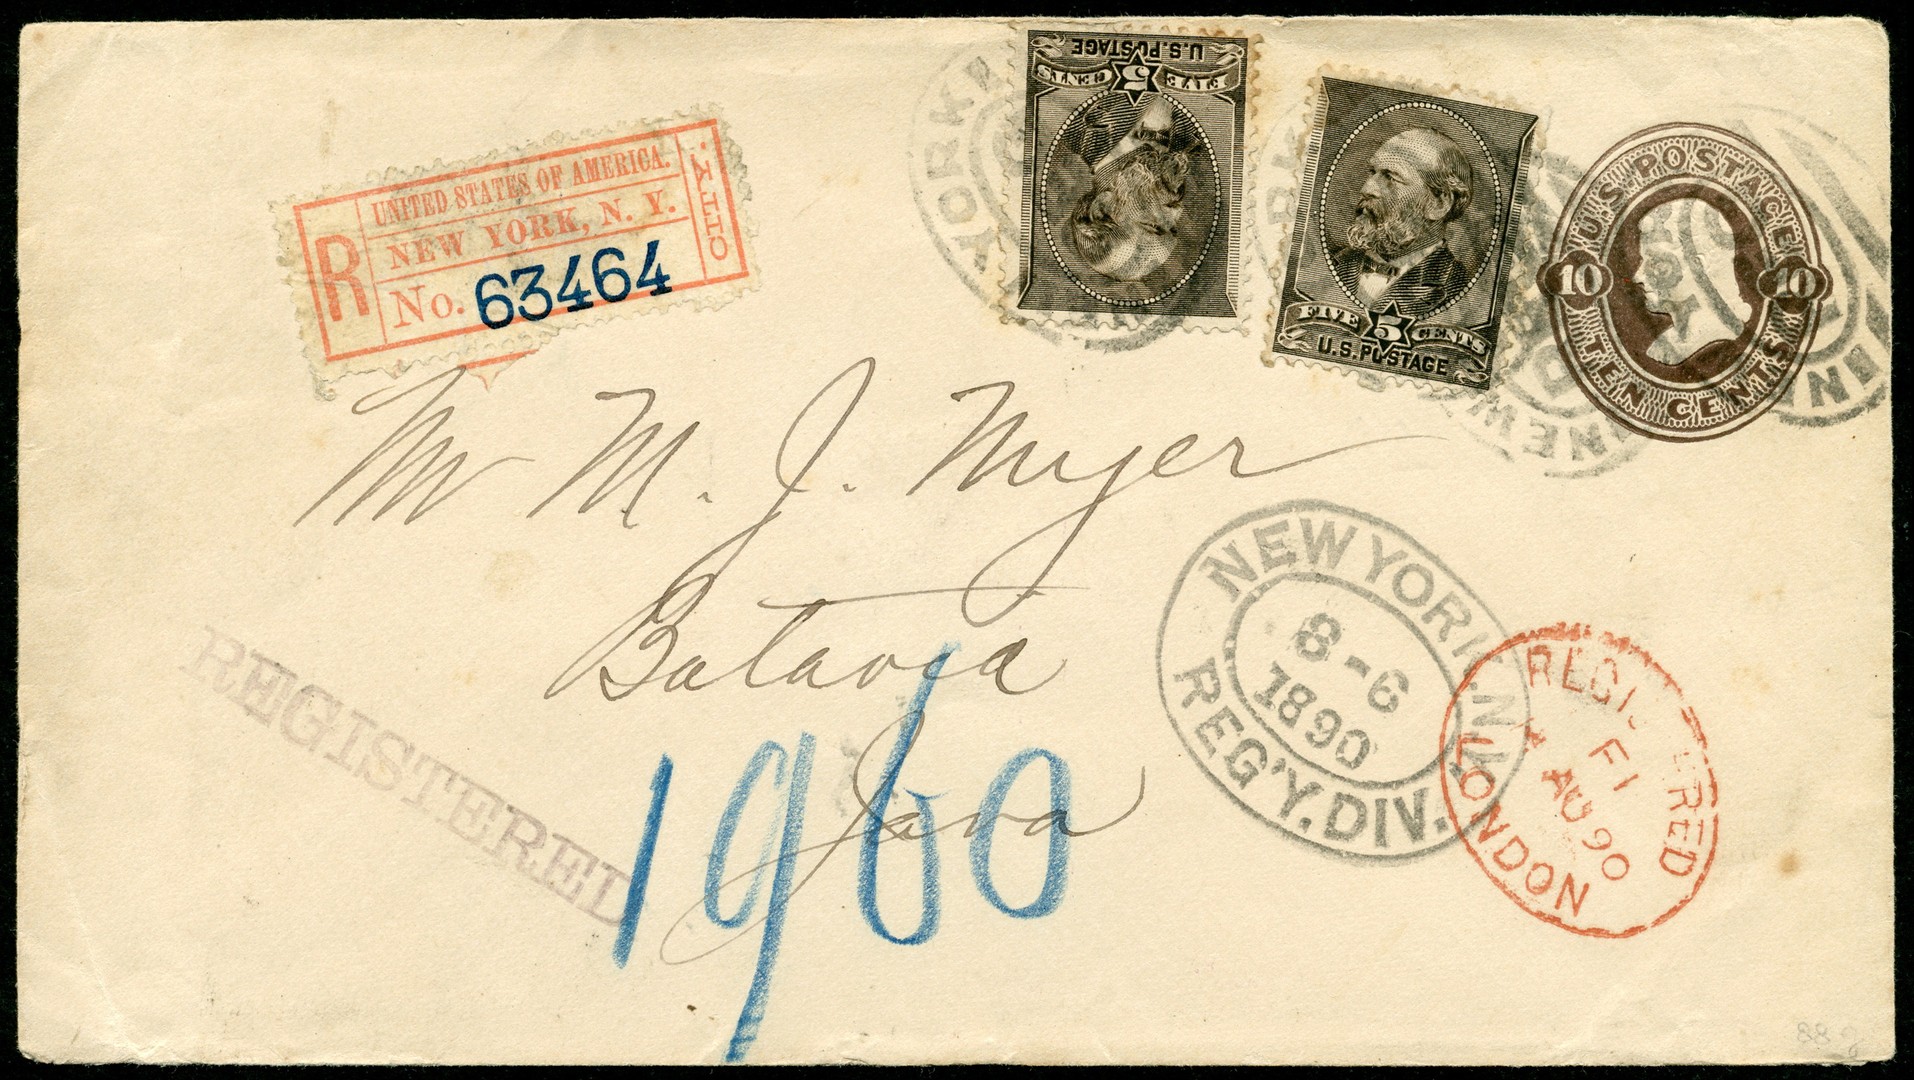 R
UNITED STATES OF AMERICA.
NEW YORK, N. Y.
No. 63464
CITY.
U.S. POSTAGE
FIVE 5 CENTS
FIVE 5 CENTS
U.S. POSTAGE
U.S. POSTAGE
10 10
TEN CENTS
YORK
NEW
IN
Mr M. J. Myer
Batavia
Java
1960
REGISTERED
NEW YORK, N.Y.
8-6
1890
REG'Y. DIV.
REGISTERED
F1
AU 90
LONDON